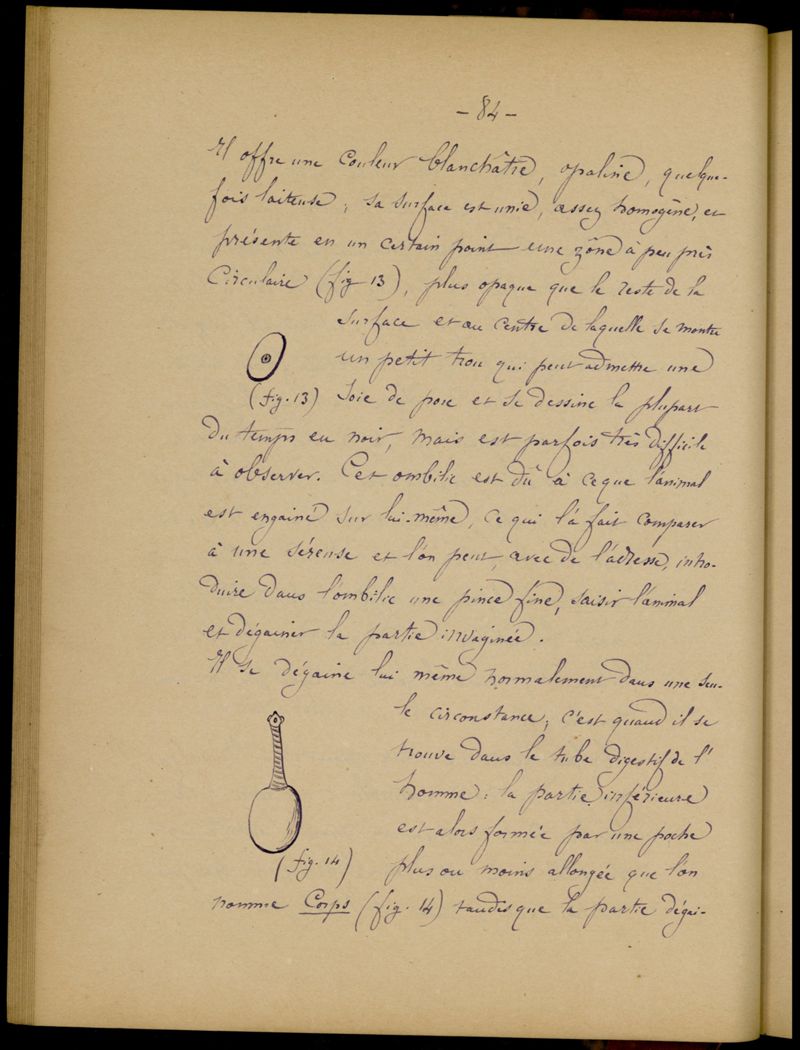 - 84 -
Il offre une couleur blanchâtre, opaline, quelque-
fois laiteuse ; sa surface est unie, assez homogène, et
présente en un certain point une zône à peu près
circulaire (fig 13), plus opaque que le reste de la
surface et au centre de laquelle se montre
un petit trou qui peut admettre une
(fig. 13) soie de porc et se dessine la plupart
du temps en noir, mais est parfois très difficile
à observer. Cet ombilic est dû à ce que l'animal
est engainé sur lui-même, ce qui l'a fait comparer
à une séreuse et l'on peut, avec de l'adresse, intro-
duire dans l'ombilic une pince fine, saisir l'animal
et dégainer la partie invaginée.
Il se dégaine lui même normalement dans une seu-
le circonstance ; c'est quand il se
trouve dans le tube digestif de l'
homme : la partie inférieure
est alors formée par une poche
(fig. 14) plus ou moins allongée que l'on
nomme Corps (fig. 14) tandis que la partie dégai-